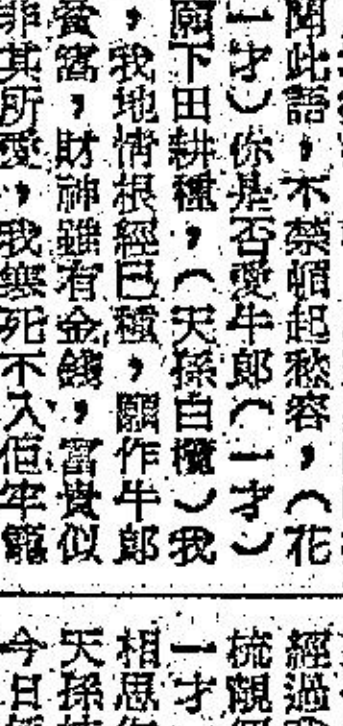 聞此語，不禁頓起愁容，（花
一才）你是否愛牛郎（一才）
願下田耕種，（天孫白欖）我
，我地情根經已種，願作牛郎
資富，財神雖有金錢，富貴似
非其所愛，我寧死不入佢牢籠
經過
梳靚
一才
相思
天孫
今日